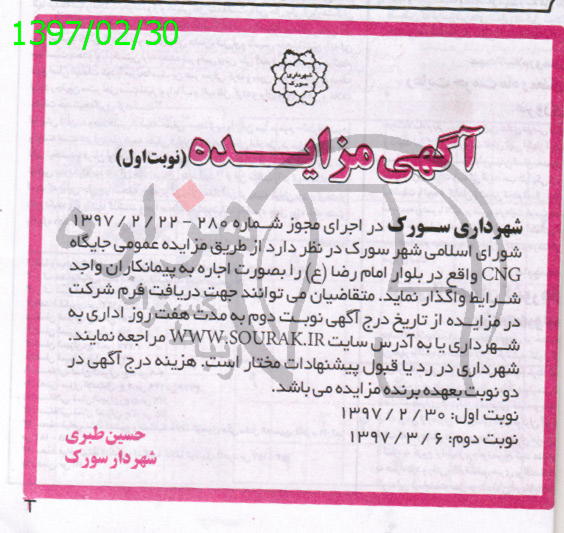 1397/02/30
شهرداری
سورک
آگهی مزایده (نوبت اول)
شهرداری سورک در اجرای مجوز شماره ۲۸۰ - ۲۲ / ۲ / ۱۳۹۷
شورای اسلامی شهر سورک در نظر دارد از طریق مزایده عمومی جایگاه
CNG واقع در بلوار امام رضا (ع) را بصورت اجاره به پیمانکاران واجد
شرایط واگذار نماید. متقاضیان می توانند جهت دریافت فرم شرکت
در مزایده از تاریخ درج آگهی نوبت دوم به مدت هفت روز اداری به
شهرداری یا به آدرس سایت WWW.SOURAK.IR مراجعه نمایند.
شهرداری در رد یا قبول پیشنهادات مختار است. هزینه درج آگهی در
دو نوبت بعهده برنده مزایده می باشد.
نوبت اول: ۳۰ / ۲ / ۱۳۹۷
نوبت دوم: ۶ / ۳ / ۱۳۹۷
حسین طبری
شهردار سورک